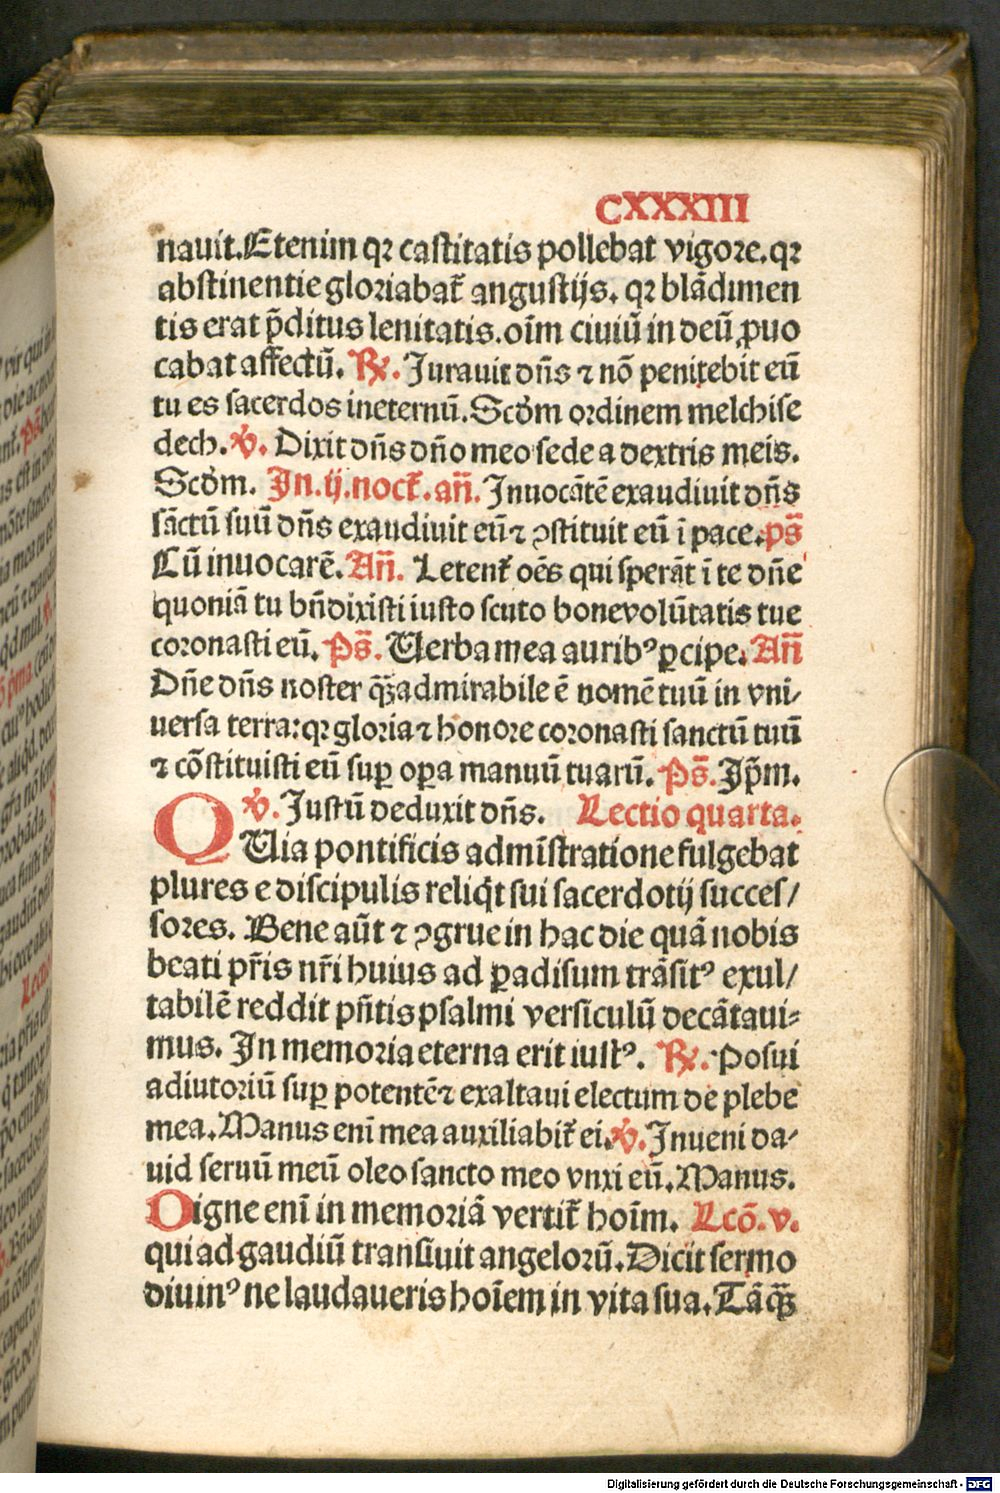 CXXXIII
nauit. Etenim qꝛ castitatis pollebat vigore. qꝛ
abstinentie gloriabat᷑ angustijs. qꝛ blādimen
tis erat p̄ditus lenitatis. oīm ciuiū in deū ꝓuo
cabat affectū. ℟. Jurauit dn̄s ⁊ nō penitebit eū
tu es sacerdos ineternū. Scd̓m ordinem melchise
dech. ℣. Dixit dn̄s dn̄o meo sede a dextris meis.
Scd̓m. Jn .ij. noct᷑. an̄. Jnuocātē exaudiuit dn̄s
sāctū suū dn̄s exaudiuit eū ⁊ ꝯstituit eū ī pace. ps̄
Cū inuocarē. An̄. Letent᷑ oēs qui sperāt ī te dn̄e
quoniā tu bn̄dixisti iusto scuto bonevolūtatis tue
coronasti eū. Ps̄. Uerba mea auribꝰ ꝑcipe. An̄
Dn̄e dn̄s noster q̄ꝫ admirabile ē nomē tuū in vni/
uersa terra: qꝛ gloria ⁊ honore coronasti sanctū tuū
⁊ cōstituisti eū suꝑ oꝑa manuū tuarū. Ps̄. Jp̄m.
℣. Justū deduxit dn̄s. Lectio quarta.
QUia pontificis admīstratione fulgebat
plures e discipulis reliq̇t sui sacerdotij succes/
sores. Bene aūt ⁊ ꝯgrue in hac die quā nobis
beati pr̄is nr̄i huius ad ꝑadisum trāsitꝰ exul/
tabilē reddit pn̄tis psalmi versiculū decātaui⸗
mus. Jn memoria eterna erit iustꝰ. ℟. Posui
adiutoriū suꝑ potentē ⁊ exaltaui electum de plebe
mea. Manus enī mea auxiliabit᷑ ei. ℣. Jnueni da⸗
uid seruū meū oleo sancto meo vnxi eū. Manus.
Digne enī in memoriā vertit᷑ hoīm. Lcō. v.
qui ad gaudiū transiuit angelorū. Dicit sermo
diuinꝰ ne laudaueris hoīem in vita sua. Tāq̄ꝫ
Digitalisierung gefördert durch die Deutsche Forschungsgemeinschaft - DFG